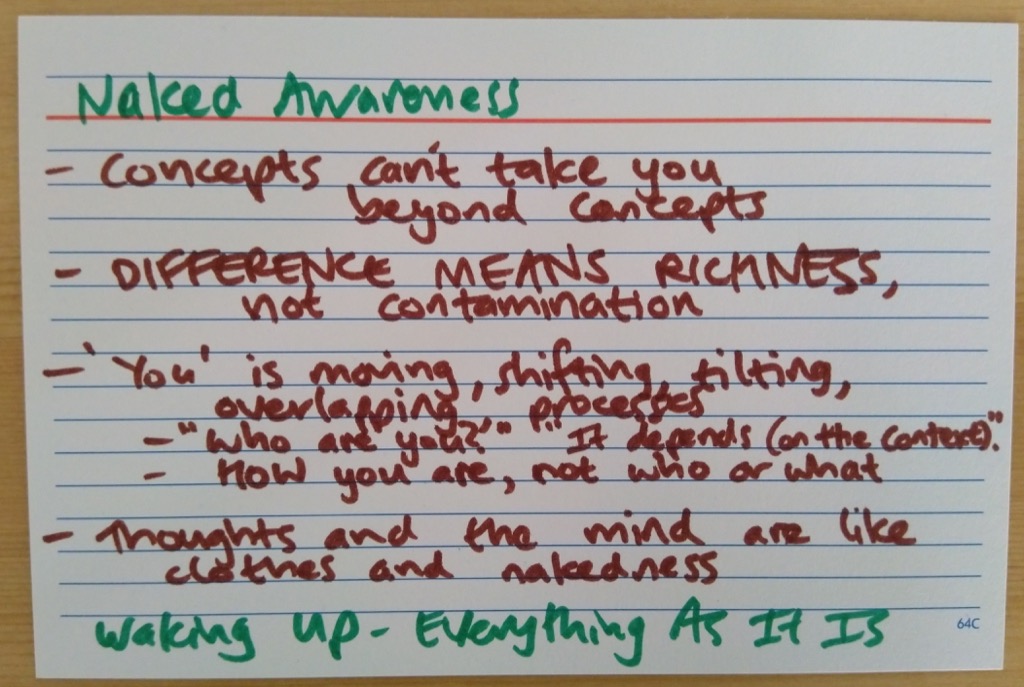 Naked Awareness
- Concepts can't take you
beyond concepts
- DIFFERENCE MEANS RICHNESS,
not contamination
- 'You' is moving, shifting, tilting,
overlapping processes
- "Who are you?" "It depends (on the context)."
- How you are, not who or what
- Thoughts and the mind are like
clothes and nakedness
Waking Up - Everything As It Is
64C